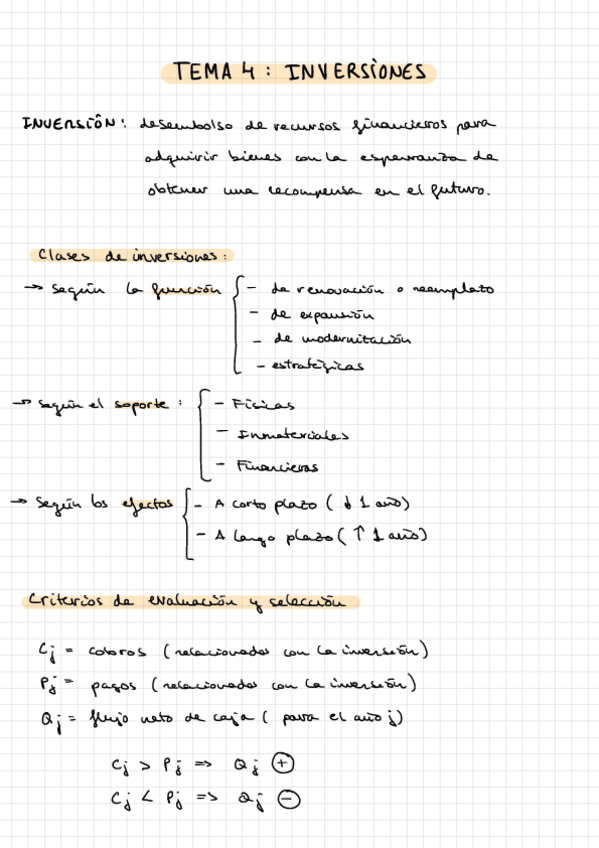 TEMA 4: INVERSIONES
INVERSIÓN: desembolso de recursos financieros para
adquirir bienes con la esperanza de
obtener una recompensa en el futuro.
Clases de inversiones:
→ según la función { - de renovación o reemplazo
- de expansión
- de modernización
- estratégicas
→ según el soporte: { - Físicas
- Inmateriales
- Financieras
→ según los efectos { - A corto plazo (↓ 1 año)
- A largo plazo (↑ 1 año)
Criterios de evaluación y selección
Cj = cobros (relacionados con la inversión)
Pj = pagos (relacionados con la inversión)
Qj = flujo neto de caja ( para el año j)
Cj > Pj => Qj ⊕
Cj < Pj => Qj ⊖